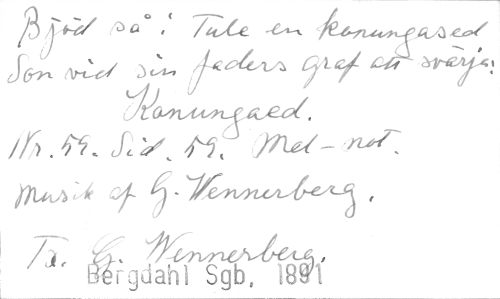 Bjöd så i Tule en konungased
Son vid sin faders graf att svärja:
Konungaed.
Nr. 59. Sid. 59. Mel-not.
Musik af G. Wennerberg.
Tx. G. Wennerberg.
Bergdahl Sgb. 1891